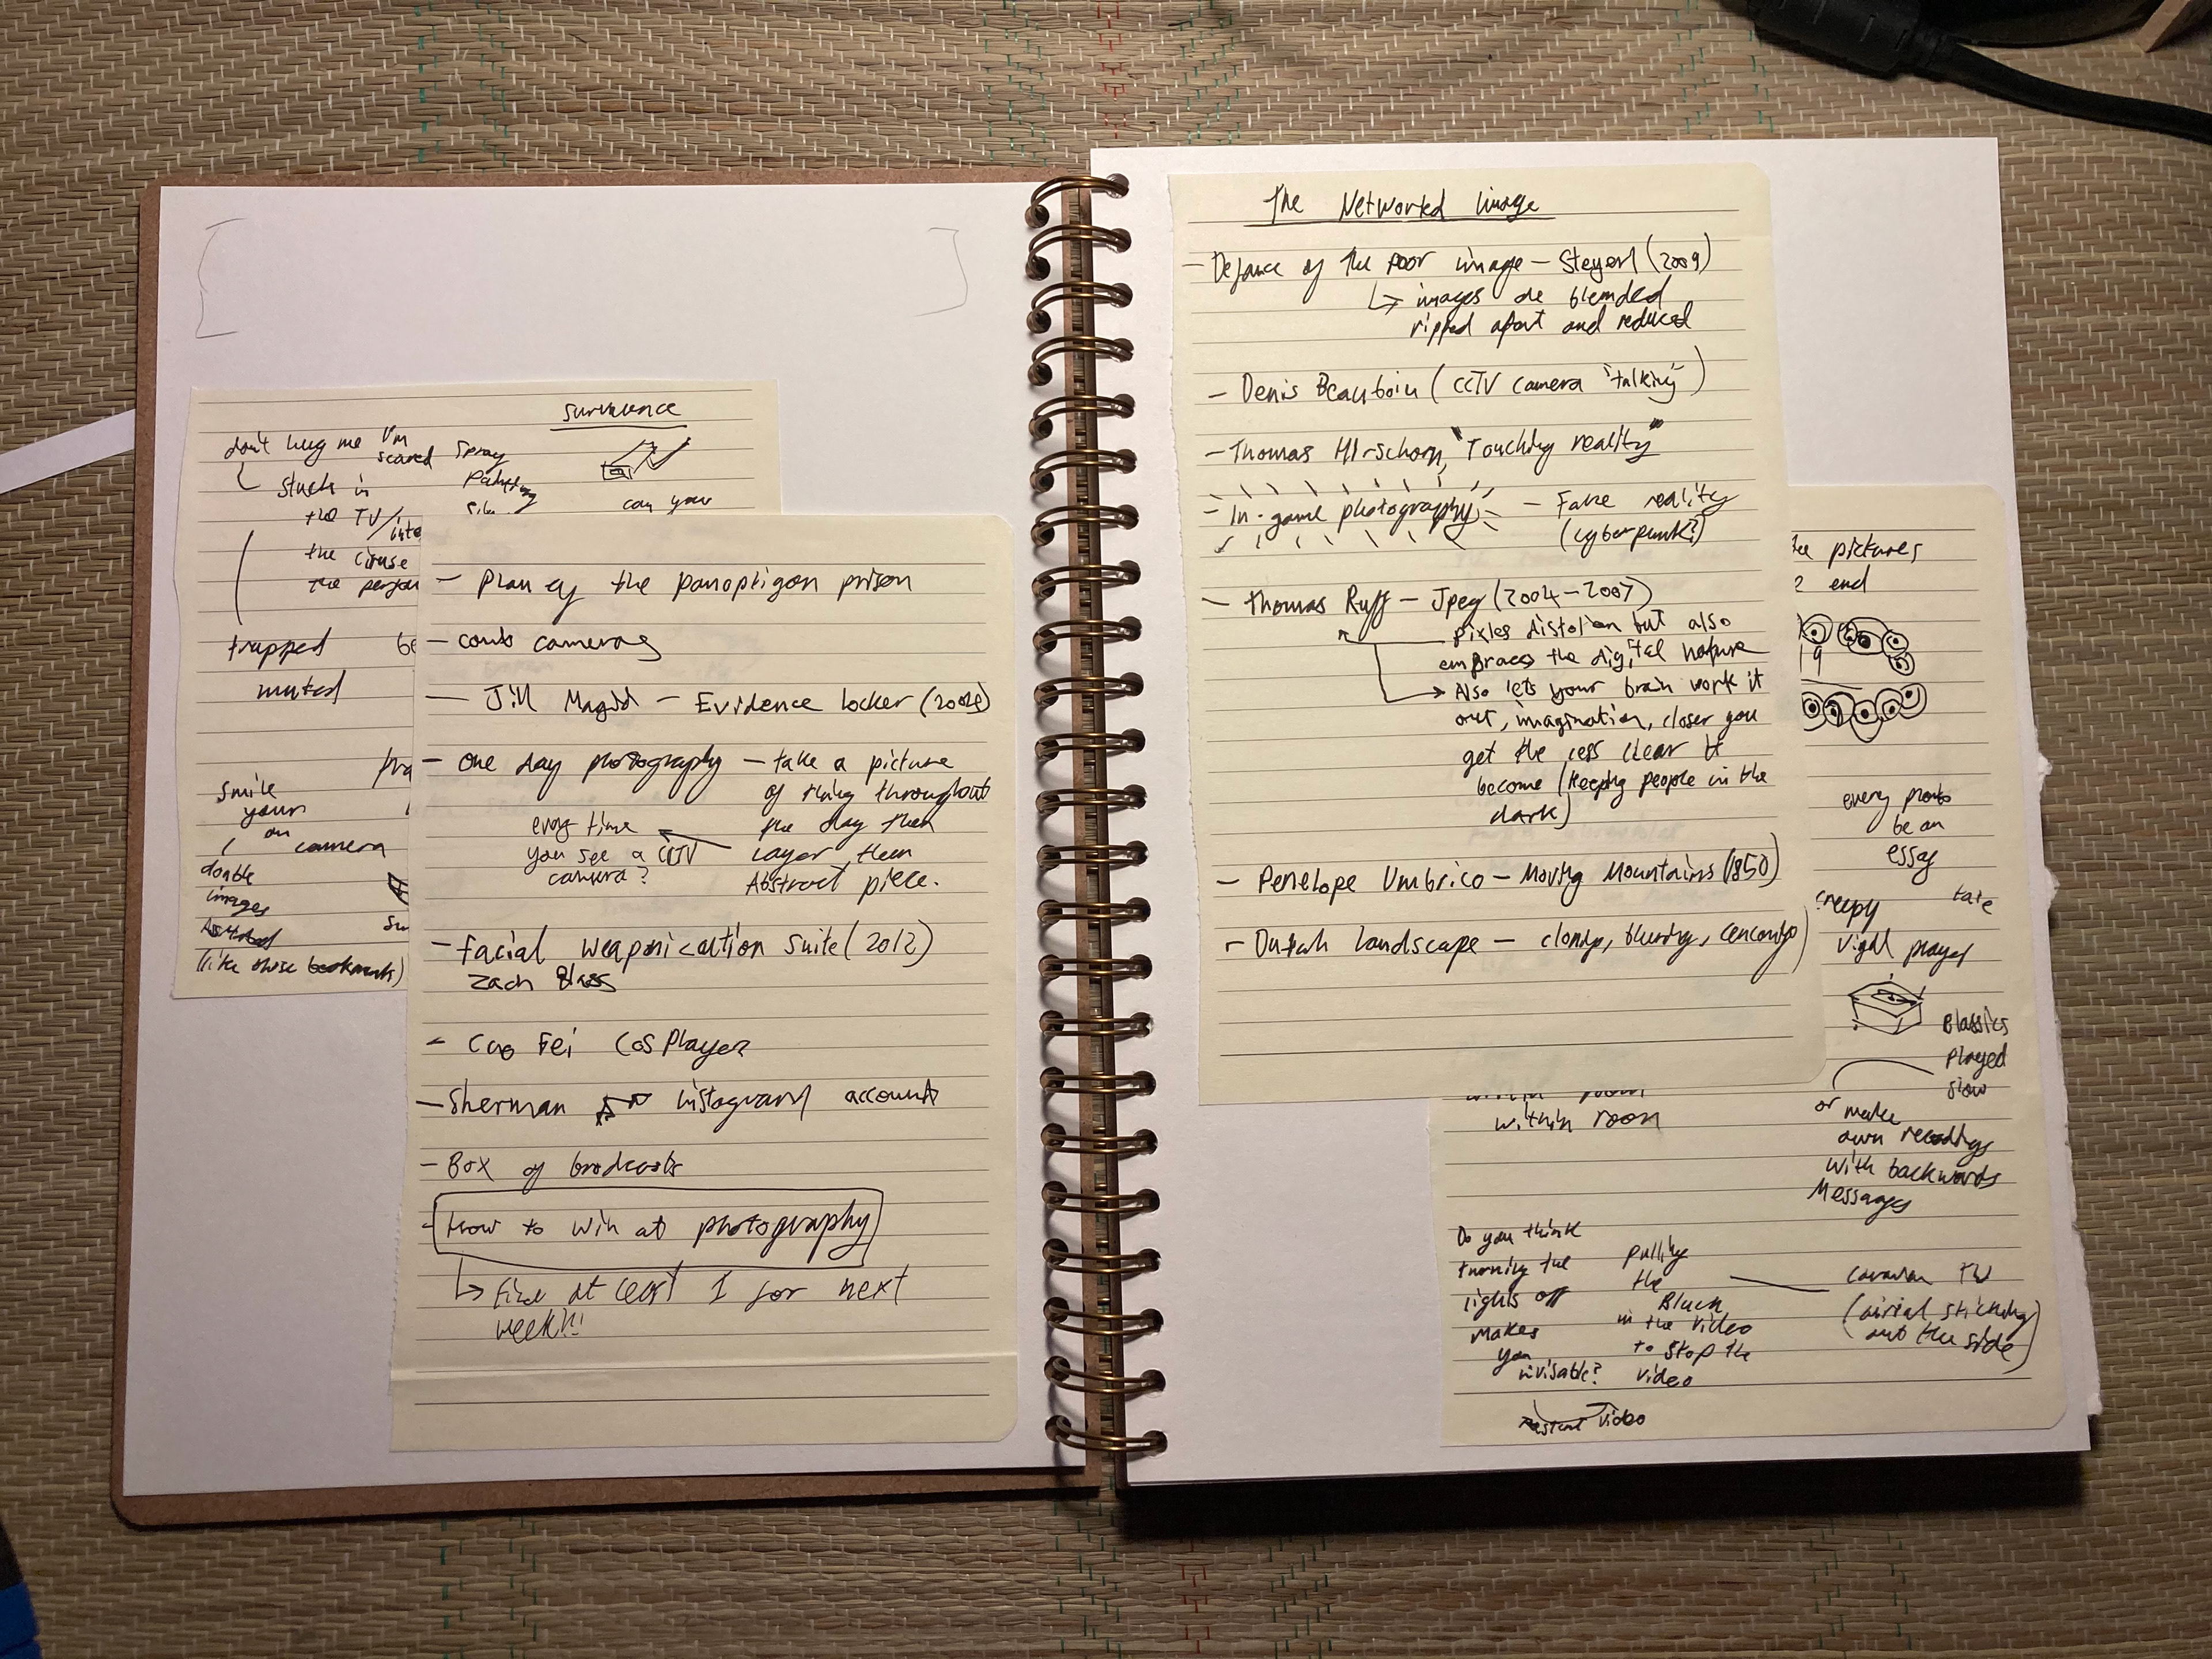 don't hug me I'm scared
stuck in
the TV/
the
the person
trapped
muted
smile
your
on
camera
double
images
(like those
survalence
spray
can your
- Plan of the panoptigon prison
- comb cameras
- Jill Magid - Evidence locker (2004)
- One day photography - take a picture
of thing throughout
the day then
layer them
Abstract piece.
every time
you see a CCTV
camera?
- Facial weaponication suite (2012)
Zach Blass
- Cao Fei Cosplayer
- Sherman instagram account
- Box of brodcasts
- How to win at photography
↳ Find at least 1 for next
week!!!
The Networked Image
- Defance of the poor image - Steyerl (2009)
↳ images are blended
ripped apart and reduced
- Denis Beauboin (CCTV camera "talking")
- Thomas Hirschorn, "Touching reality"
- In-game photography - Fake reality
(cyberpunk?)
- Thomas Ruff - Jpeg (2004-2007)
pixles distotion but also
embraces the digital nature
→ Also lets your brain work it
out, imagination, closer you
get the less clear it
become (keeping people in the
dark)
- Penelope Umbrico - Moving Mountains (1850)
- Dutch landscape - cloning, bluring,
pictures
end
every
be an
essay
creepy
take
player
Classics
played
slow
or make
own recordings
with backwards
Messages
within room
within room
Do you think
turning the
lights off
makes
you
invisable?
video
pulling
the
Black
in the video
to stop the
video
caravan TV
(airial sticking
out the side)